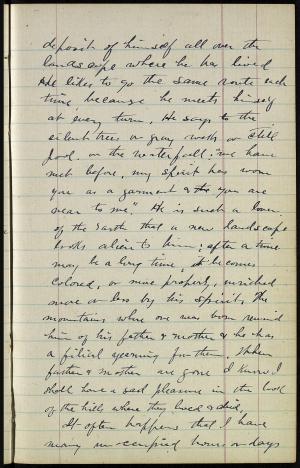 deposit of himself all over the
landscape where he has lived
He likes to go the same route each
time, because he meets himself
at every turn. He says to the
silent trees or gray rocks or still
pool, or the waterfall: "we have
met before, my spirit has worn
you as a garment & you are
near to me". He is such a lover
of the earth that a new landscape
looks alien to him; after a time
may be a long time, it becomes
colored, or more properly, enriched
more or less by his spirit. The
mountains where one was born remind
him of his father & mother & he has
a filial yearning for them. When
father & mother are gone I know I
shall have a sad pleasure in the look
of the hills where they lived & died.
It often happens that I have
many un-occupied hours or days